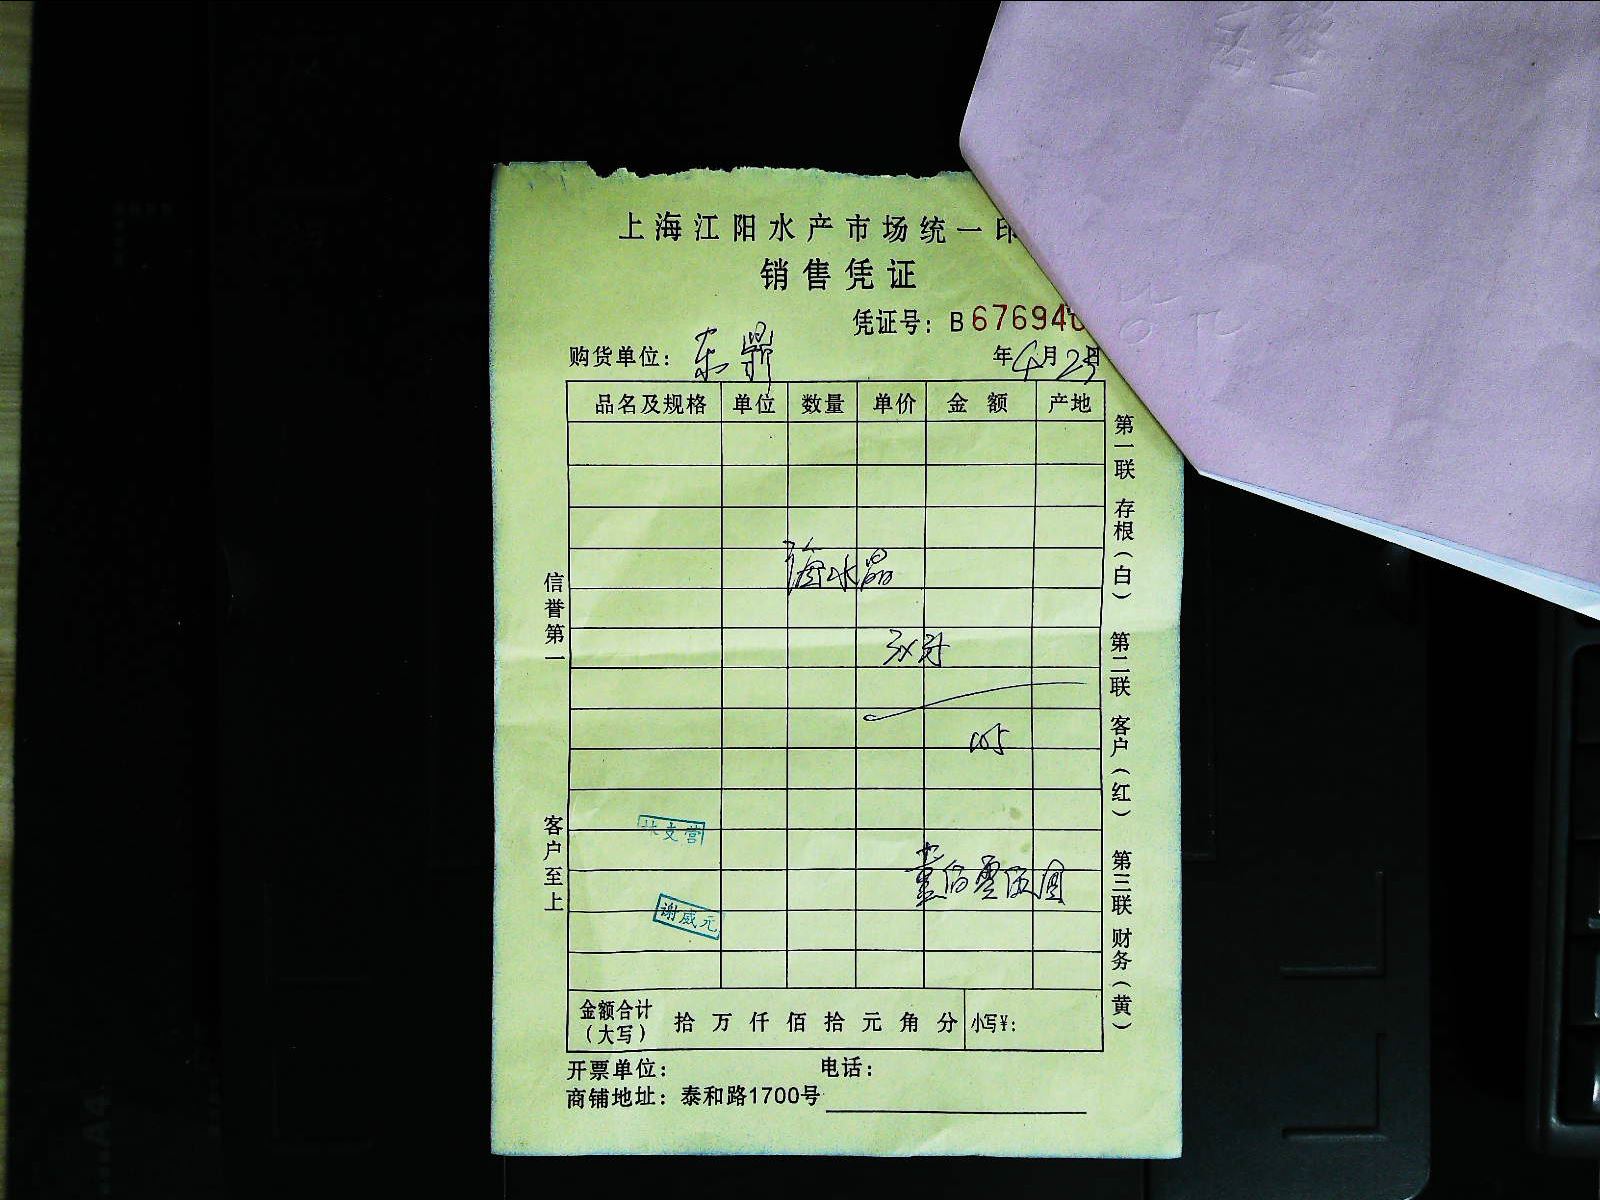 上海江阳水产市场统一印
销售凭证
凭证号：B 676940
购货单位：东鼎 年4月25日
品名及规格 单位 数量 单价 金额 产地
海水晶
105
壹佰零伍圆
谢威元
金额合计（大写） 拾 万 仟 佰 拾 元 角 分 小写￥：
开票单位： 电话：
商铺地址：泰和路1700号
信誉第一
客户至上
第一联 存根（白）
第二联 客户（红）
第三联 财务（黄）